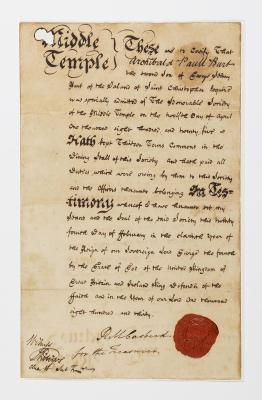 Middle Temple } These are to Certify That
Archibald Paull Burt
the second Son of George Henry
Burt of the Island of Saint Christopher Esquire
was specially admitted of The Honorable Society
of the Middle Temple on the twelfth Day of April
One thousand eight hundred and twenty five
Hath kept Thirteen Terms Commons in the
Dining Hall of this Society and hath paid all
Duties which were owing by him to this Society
and the Officers thereunto belonging In Tes-
timony whereof I have hereunto set my
Hand and the Seal of the said Society this twenty
fourth Day of February in the eleventh Year of
the Reign of our Sovereign Lord George the fourth
by the Grace of God of the United Kingdom of
Great Britain and Ireland King Defender of the
Faith and in the Year of our Lord One thousand
eight hundred and thirty
Witness
for the Treasurer